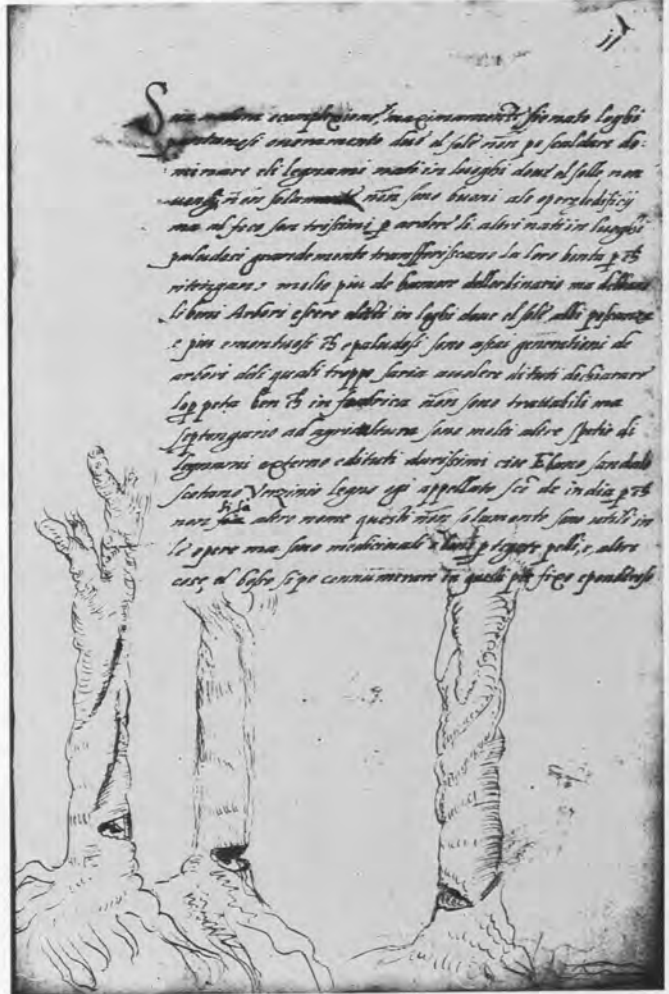 Sua natura e complexione, maximamente se sonato loghi
pantanosi overamente dove el sole nõn po scaldare do:
minare eli legnami nati in luoghi dove el solle non
nõn sono buoni ale opere ledificij
ma al foco son tristissimi p ardere li altri nati in luoghi
paludosi grandemente transferiscano la loro bonta p
ritengano molto piu de humore dellordinario ma debbano
li boni Arbori essere eletti in loghi dove el sole abbi possanza
e piu e montuosi e paludosi sono assai generationi de
arbori deli quali troppo saria a volere di tuti dechiarare
in fabrica nõn sono trattabili ma
ad agricultura sono molti altre spetie di
legnami externe e di tuti durissimi cioe Ebano sandali
scotano Verzinio legno ogi appellato de india p
non si sa altro nome questi nõn solamente sono utili in
le opere ma sono medicinali e boni p tegere pelli, e, altre
cose, el bosso si po connumerare in quelli fixo e ponderoso